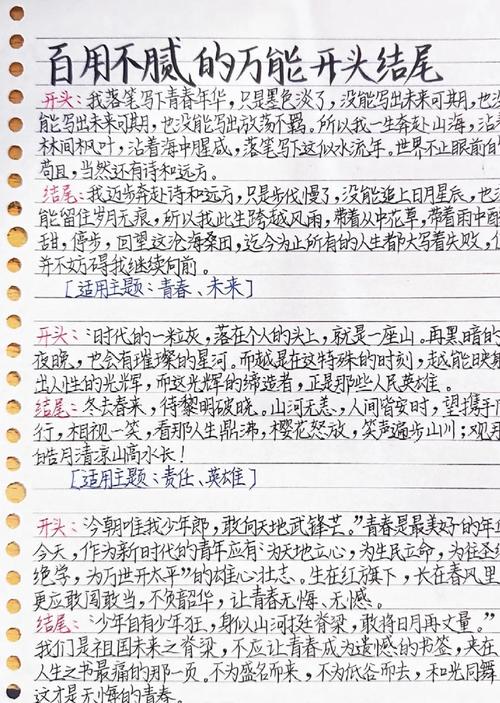 百用不腻的万能开头结尾
开头：我落笔写下青春年华，只是墨色淡了，没能写出未来可期，也没
能写出未来可期，也没能写出放荡不羁。所以我一生奔赴山海，沾着
林间枫叶，沾着海中腥咸，落笔写下这似水流年。世界不止眼前的
苟且，当然还有诗和远方。
结尾：我迈步奔赴诗和远方，只是步伐慢了，没能追上日月星辰，也没
能留住岁月无痕，所以我此生跨越风雨，带着丛中花草，带着雨中甘
甜，停步，回望这沧海桑田，迄今为止所有的人生都大写着失败，但
并不妨碍我继续向前。
[适用主题：青春、未来]
开头：“时代的一粒灰，落在个人的头上，就是一座山。再黑暗的
夜晚，也会有璀璨的星河。而越是在这特殊的时刻，越能映射
出人性的光辉，而这光辉的缔造者，正是那些人民英雄。
结尾：冬去春来，待黎明破晓。山河无恙，人间皆安时，望携手
行，相视一笑，看那人生鼎沸，樱花怒放，笑声遍步山川；观那
皓月清凉山高水长！
[适用主题：责任、英雄]
开头：“今朝唯我少年郎，敢向天地试锋芒。”青春是最美好的年
今天，作为新时代的青年应有“为天地立心，为生民立命，为往圣
绝学，为万世开太平”的雄心壮志。生在红旗下，长在春风里
更应敢闯敢当，不负韶华，让青春无悔、无憾。
结尾：“少年自有少年狂，身似山河挺脊梁，敢将日月再丈量。”
我们是祖国未来之脊梁，不应让青春成为遗憾的书签，夹在
人生之书最痛的那一页。不为盛名而来，不为低谷而去，和光同舞
这才是无悔的青春。